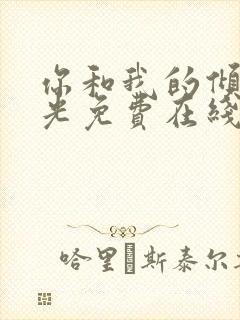 你和我的倾
光免費在綫
哈里·斯泰尔